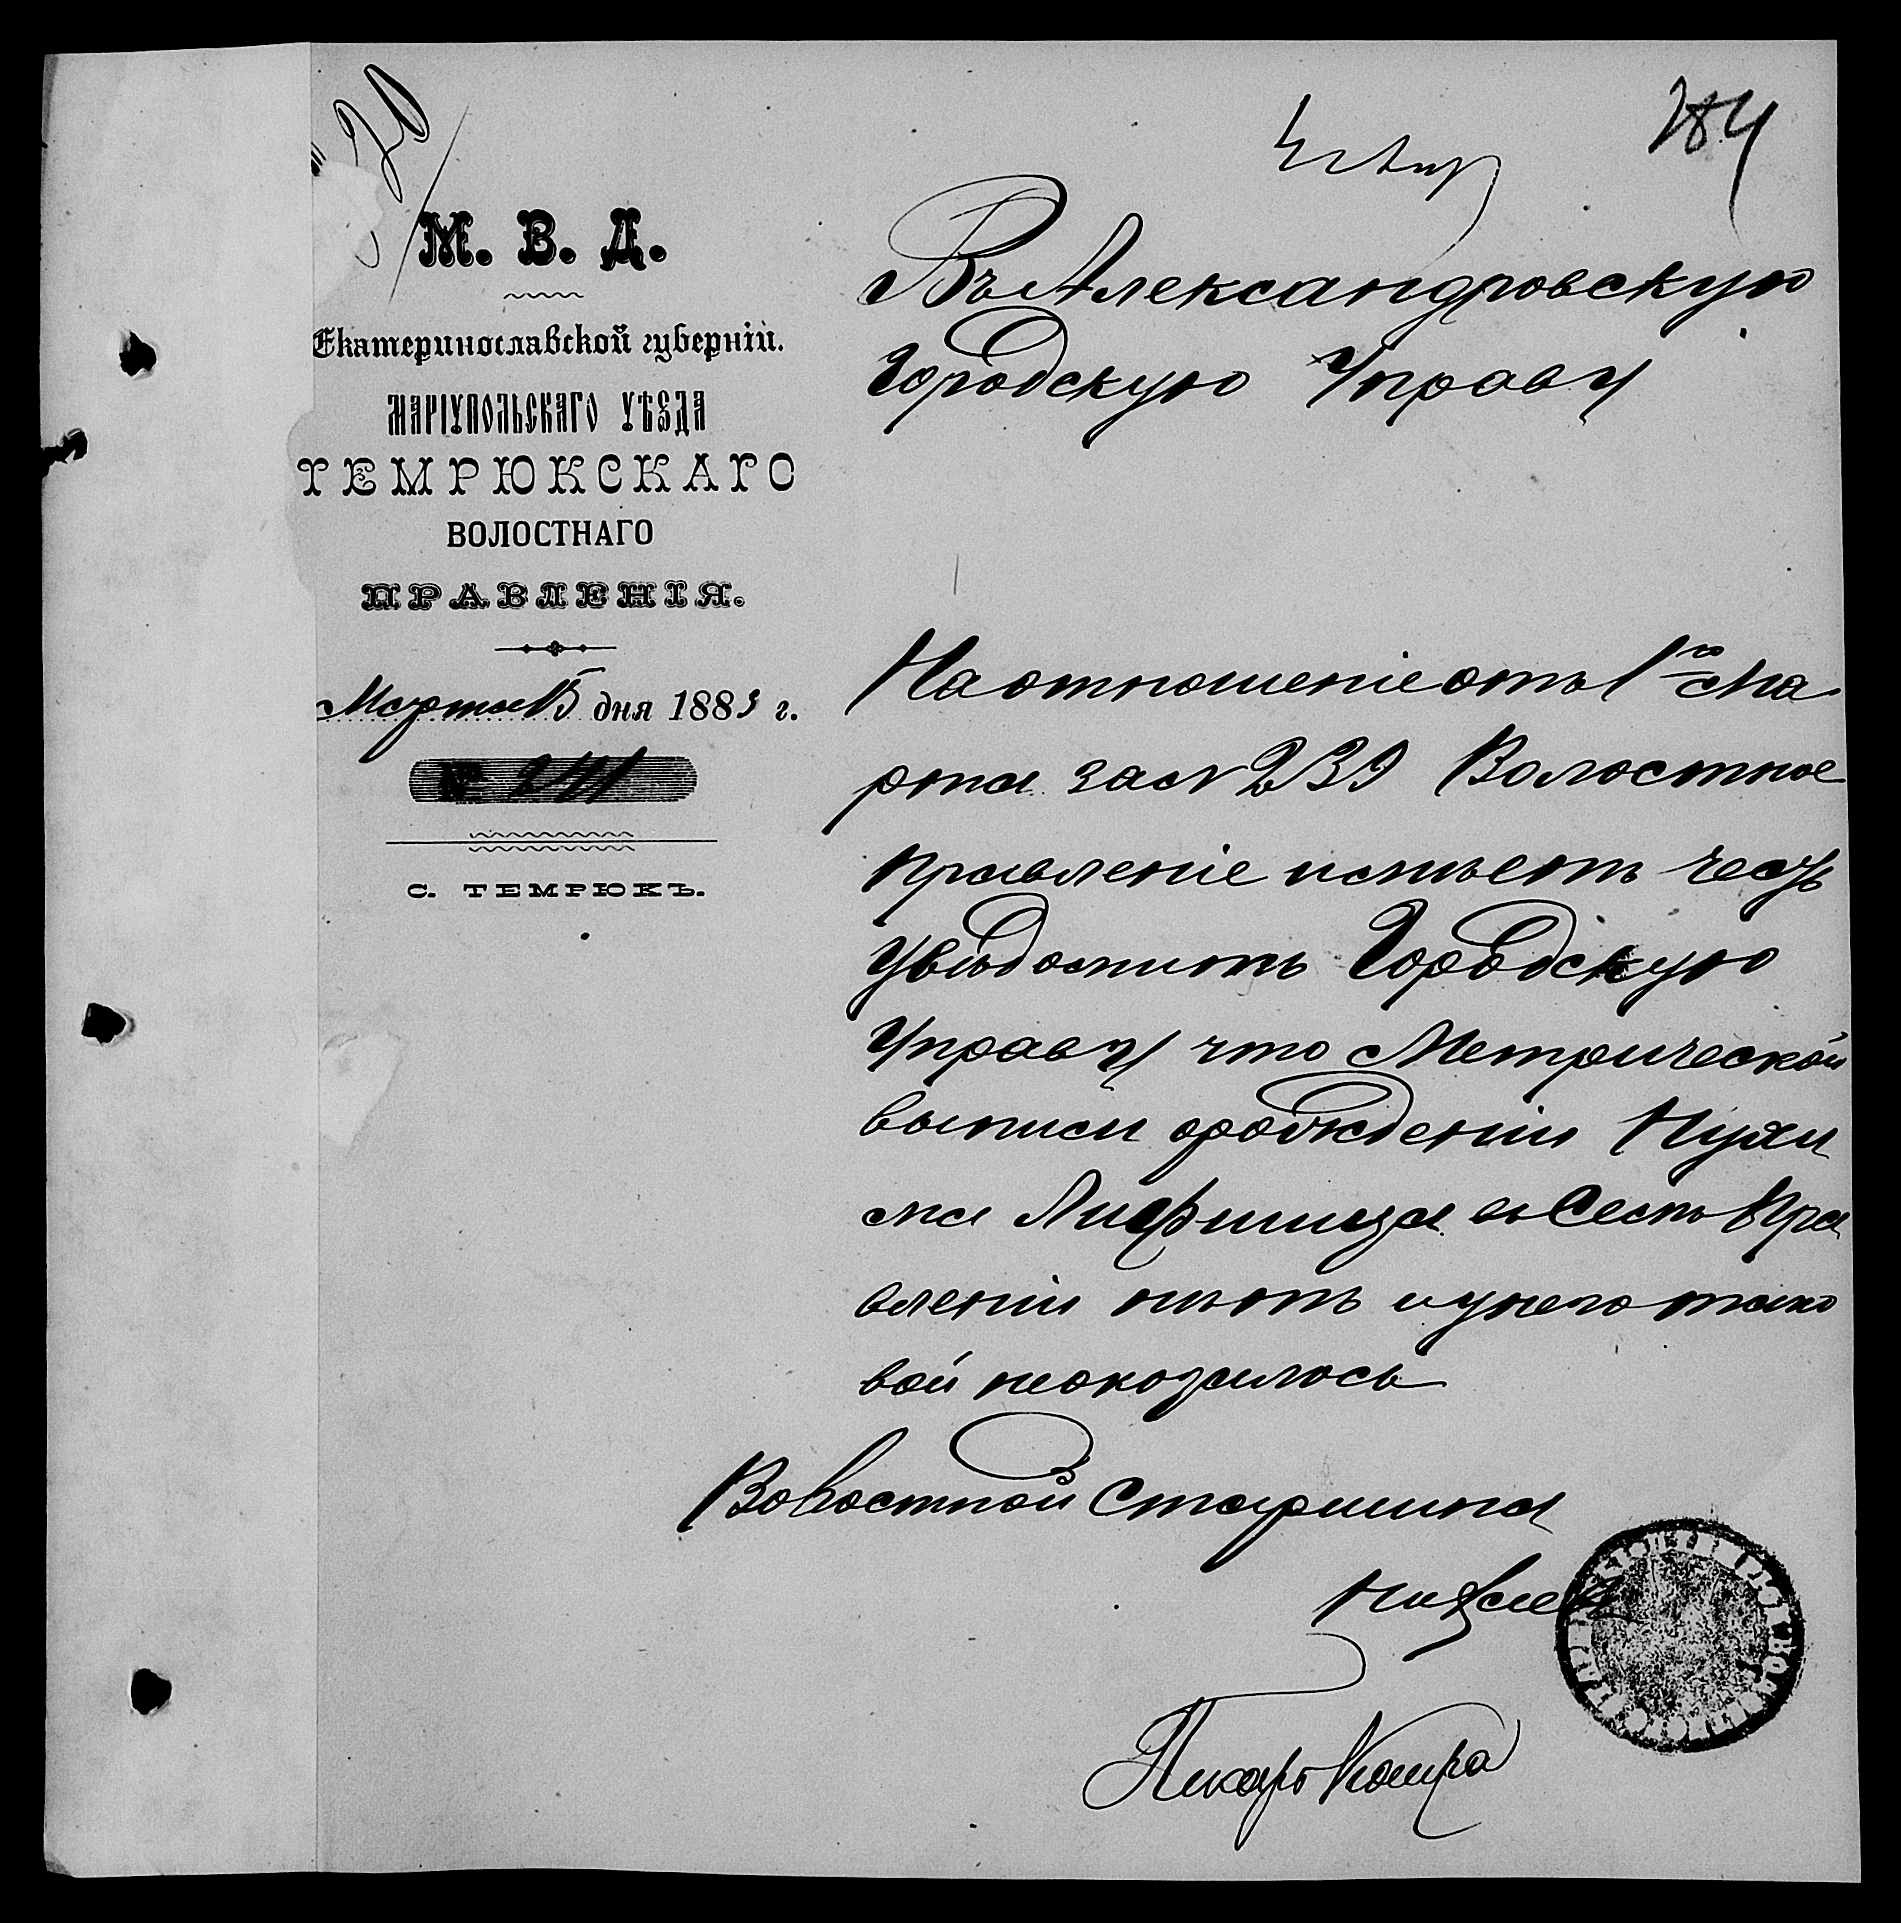 284
М. В. Д.
Екатеринославской губерніи.
МАРІУПОЛЬСКАГО УѢЗДА
ТЕМРЮКСКАГО
ВОЛОСТНАГО
ПРАВЛЕНІЯ.
Марта 15 дня 1883 г.
№ 241
С. ТЕМРЮКЪ.
Въ Александровскую
Городскую Управу
На отношеніе отъ 1го Ма
рта за № 239 Волостное
правленіе имѣетъ честь
увѣдомить Городскую
Управу что Метрической
выписи орожденіи Нухи
ма Лифшица въ Семъ Пра
вленіи нѣтъ и у него тако
вой неоказалось
Волостной Старшина
Писарь